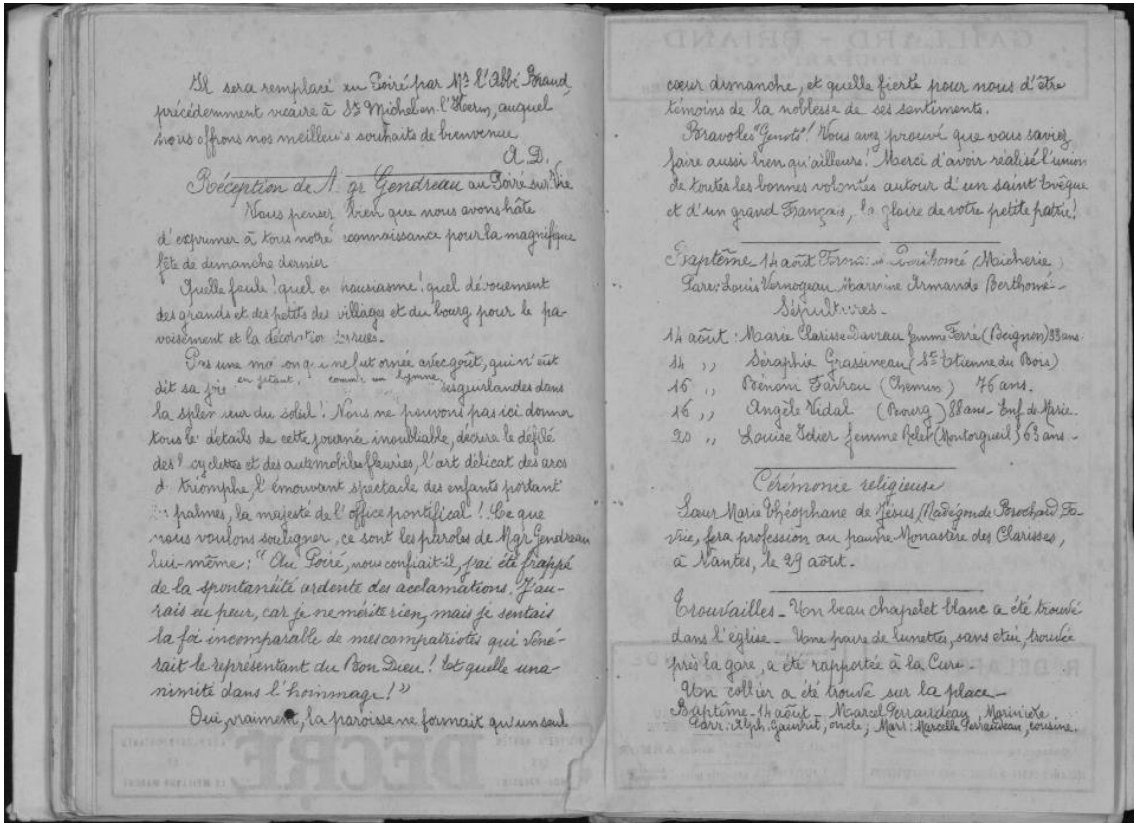 Il sera remplacé au Poiré par Mr l'Abbé Braud,
précédemment vicaire à St Michel en l'Herm, auquel
nous offrons nos meilleurs souhaits de bienvenue
A.D.
Réception de M gr Gendreau au Poiré sur Vie
Vous pensez bien que nous avons hâte
d'exprimer à tous notre reconnaissance pour la magnifique
fête de dimanche dernier
Quelle foule! quel en housiasme! quel dévouement
des grands et des petits des villages et du bourg pour le pa-
voisement et la décoration
Pas une ma on qui ne fut ornée avec goût, qui n'eût
dit sa joie en jetant, comme un hymne guirlandes dans
la splen eur du soleil! Nous ne pouvons pas ici donner
tous les détails de cette journée inoubliable, décrire le défilé
des cyclettes et des automobiles fleuries, l'art délicat des arcs
d triomphe, l'émouvant spectacle des enfants portant
palmes, la majesté de l'office pontifical!.. Ce que
nous voulons souligner, ce sont les paroles de Mgr Gendreau
lui-même: "Au Poiré, nous confiait-il, j'ai été frappé
de la spontanéité ardente des acclamations. J'au-
rais eu peur, car je ne mérite rien, mais je sentais
la foi incomparable de mes compatriotes qui véné-
rait le représentant du Bon Dieu! Et quelle una-
nimité dans l'hommage!"
Oui, vraiment, la paroisse ne formait qu'un seul
cœur dimanche, et quelle fierté pour nous d'être
témoins de la noblesse de ses sentiments.
Bravo les "Genots"! Vous avez prouvé que vous saviez
faire aussi bien qu'ailleurs! Merci d'avoir réalisé l'union
de toutes les bonnes volontés autour d'un saint Evêque
et d'un grand Français, la gloire de votre petite patrie!
Baptême 14 août (Micherie)
Parr: Louis Vernogeau Marraine Armande Berthomé-
Sépultures-
14 août: Marie Clarisse Davrau femme Ferré (Beignon) 33 ans
14 ,, Séraphie Grasineau (St Etienne du Bois)
16 ,, Bénoni Favrou (Chemin) 76 ans.
16 ,, Angèle Vidal (Bourg) 88 ans- Enf de Marie.
20 ,, Louise Idier femme Relet (Montorgueil) 63 ans-
Cérémonie religieuse
Sœur Marie Théophane de Jésus, Radégonde Brochard Fa-
vrie, fera profession au pauvre Monastère des Clarisses,
à Nantes, le 29 août-
Trouvailles- Un beau chapelet blanc a été trouvé
dans l'église- Une paire de lunettes, sans etui, trouvée
près la gare, a été rapportée à la Cure-
Un collier a été trouvé sur la place-
Baptême-14 août- Marcel Perraudeau, Marinière
Parr: Alph. Gauvrit, oncle; Marr: Marcelle Perraudeau, cousine.